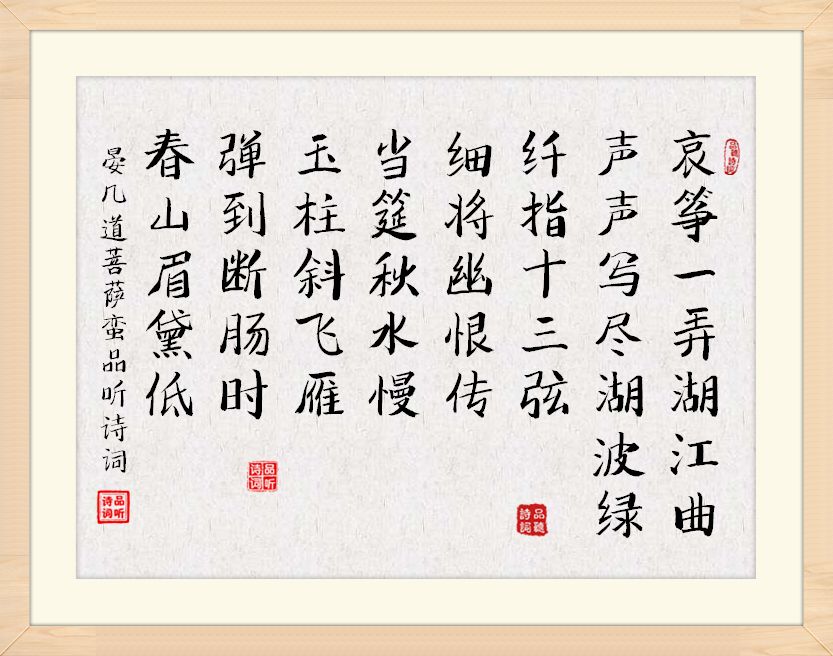 哀筝一弄湖江曲
声声写尽湖波绿
纤指十三弦
细将幽恨传
当筵秋水慢
玉柱斜飞雁
弹到断肠时
春山眉黛低
晏几道菩萨蛮品听诗词
品聽詩詞
品聽詩詞
品听诗词
品听诗词